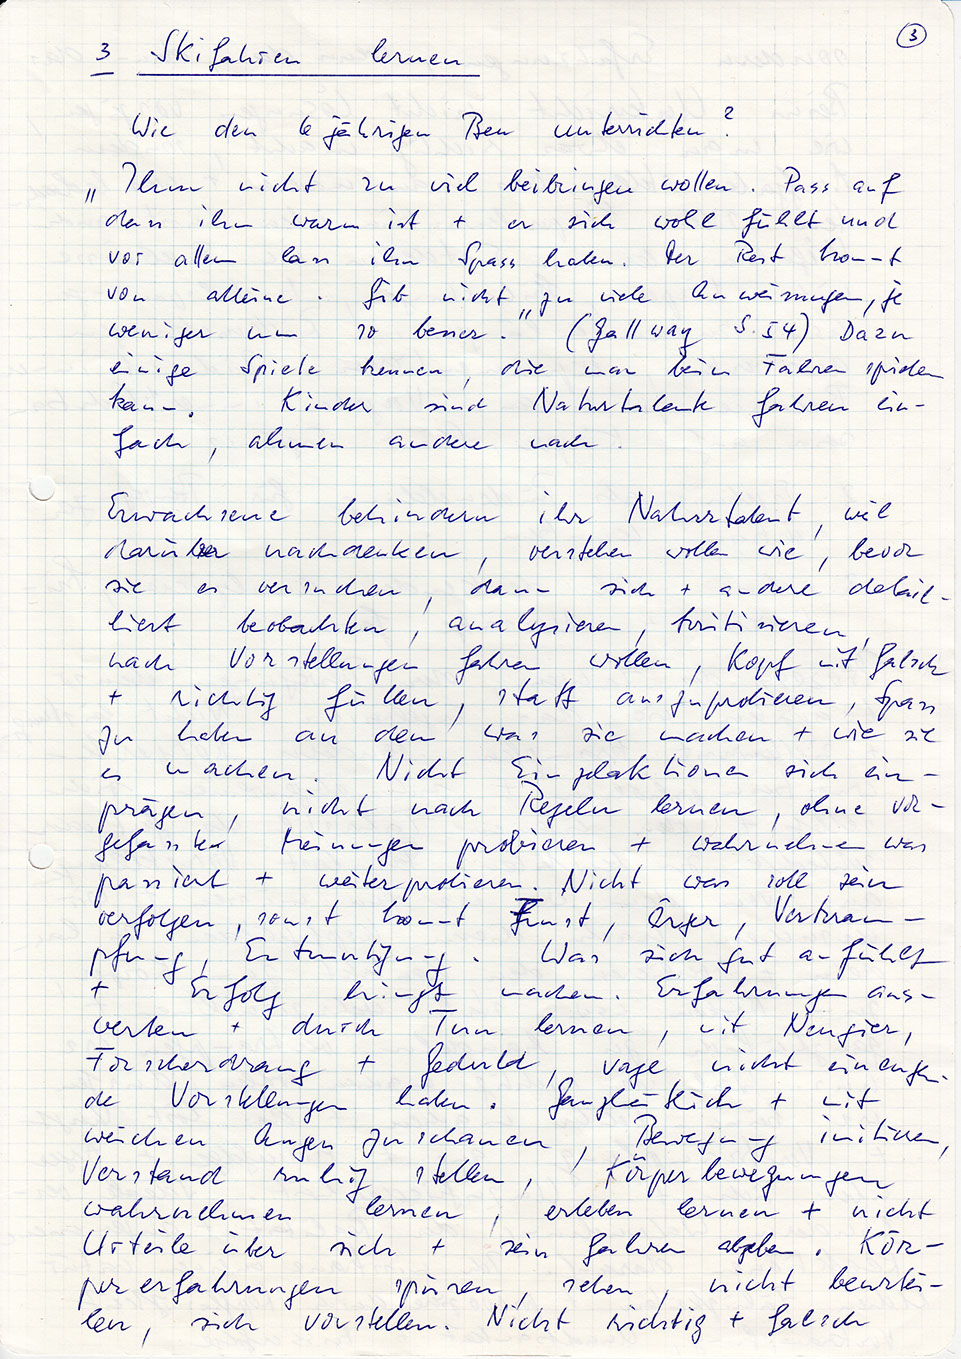 3
3 Skifahren lernen
Wie den 6 jährigen Ben unterrichten?
„Ihm nicht zu viel beibringen wollen. Pass auf
dass ihm warm ist + er sich wohl fühlt und
vor allem lass ihn Spass haben. Der Rest kommt
von alleine. Gib nicht zu viele Anweisungen, je
weniger um so besser.“ (Gallway S. 54) Dazu
einige Spiele kennen, die man beim Fahren spielen
kann. Kinder sind Naturtalente fahren ein-
fach, ahmen andere nach.
Erwachsene behindern ihr Naturtalent, weil
darüber nachdenken, verstehen wollen wie, bevor
sie es versuchen, dann sich + andere detail-
liert beobachten, analysieren, kritisieren,
nach Vorstellungen fahren wollen, Kopf mit falsch
+ richtig füllen, statt auszuprobieren, Spass
zu haben an dem was sie machen + wie sie
es machen. Nicht Einzelaktionen sich ein-
prägen, nicht nach Regeln lernen, ohne vor-
gefasste Meinungen probieren + wahrnehmen was
passiert + weiterprobieren. Nicht was soll sein
verfolgen, sonst kommt Frust, Ärger, Verkram-
pfung, Entmutigung. Was sich gut anfühlt
+ Erfolg bringt machen. Erfahrungen aus-
werten + durch Tun lernen, mit Neugier,
Forscherdrang + Geduld, vage nicht einengen-
de Vorstellungen haben. Ganzheitlich + mit
weichen Augen zuschauen, Bewegung initiieren,
Verstand ruhig stellen, Körperbewegungen
wahrnehmen lernen, erleben lernen + nicht
Urteile über sich + sein fahren abgeben. Kör-
pererfahrungen spüren, sehen, nicht beurtei-
len, sich vorstellen. Nicht richtig + falsch